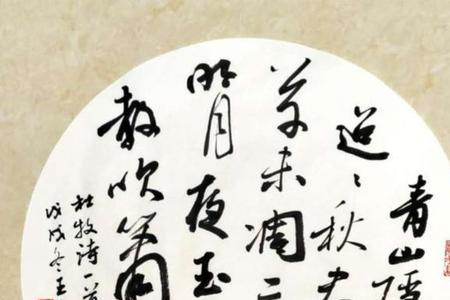 青山隱
迢〻秋尽
草未凋二
明月夜玉
教吹簫
杜牧詩一首
戊戌冬王